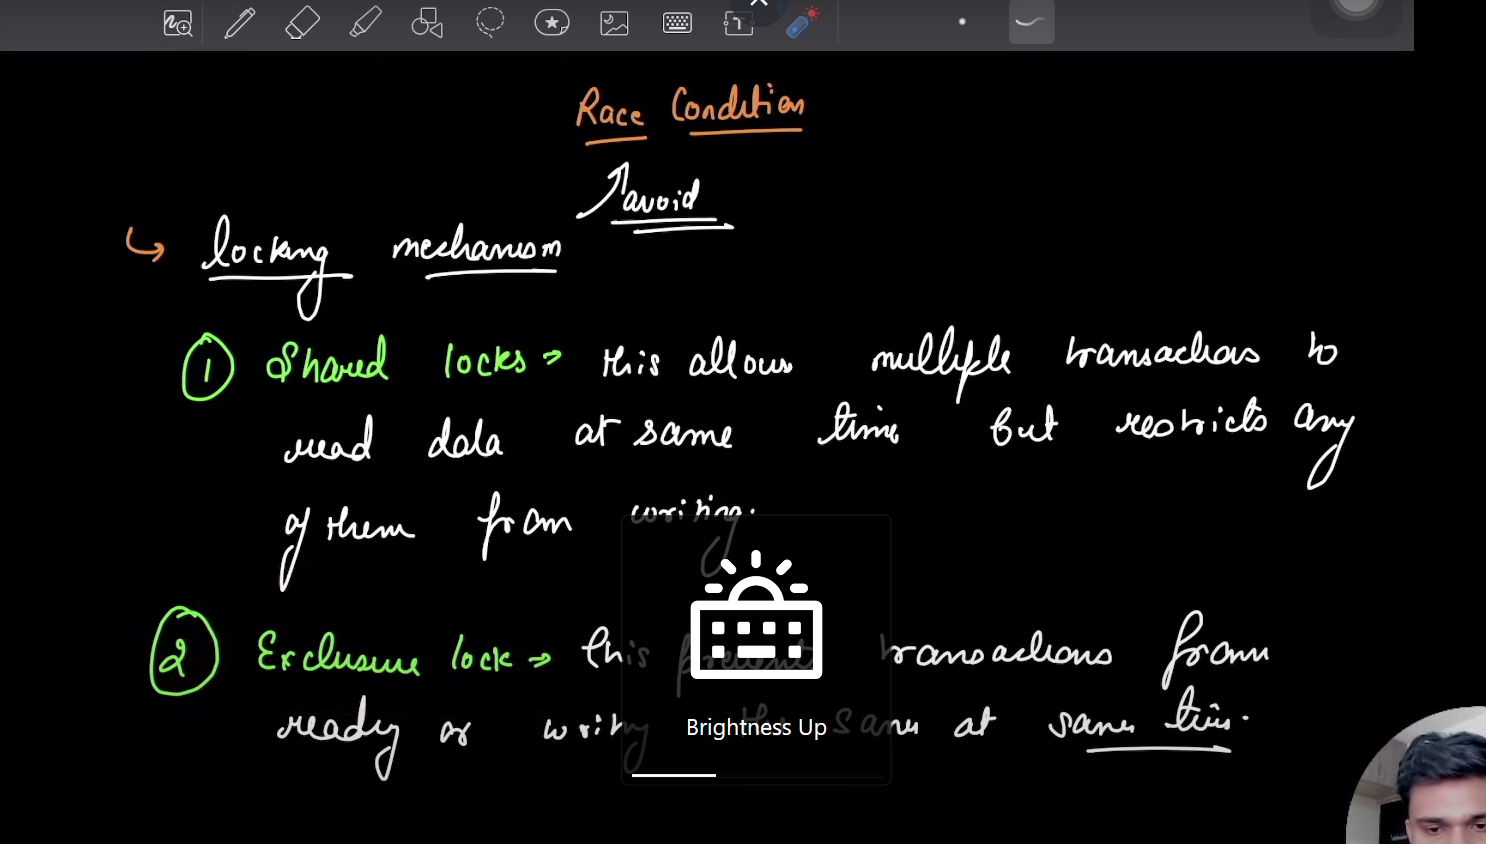 Race Condition
avoid
locking mechanism
1 Shared locks → this allows multiple transactions to
read data at same time but restricts any
of them from writing.
2 Exclusive lock → this prevents transactions from
reading or writing the same at same time.
Brightness Up